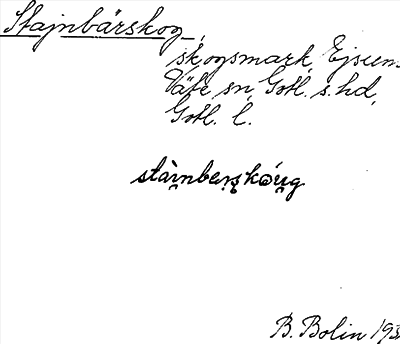 Stajnbärskog,
skogsmark, Ejsum
Väte sn, Gotl. s. hd,
Gotl. l.
stài̯nberskóu̯g
B. Bolin 193